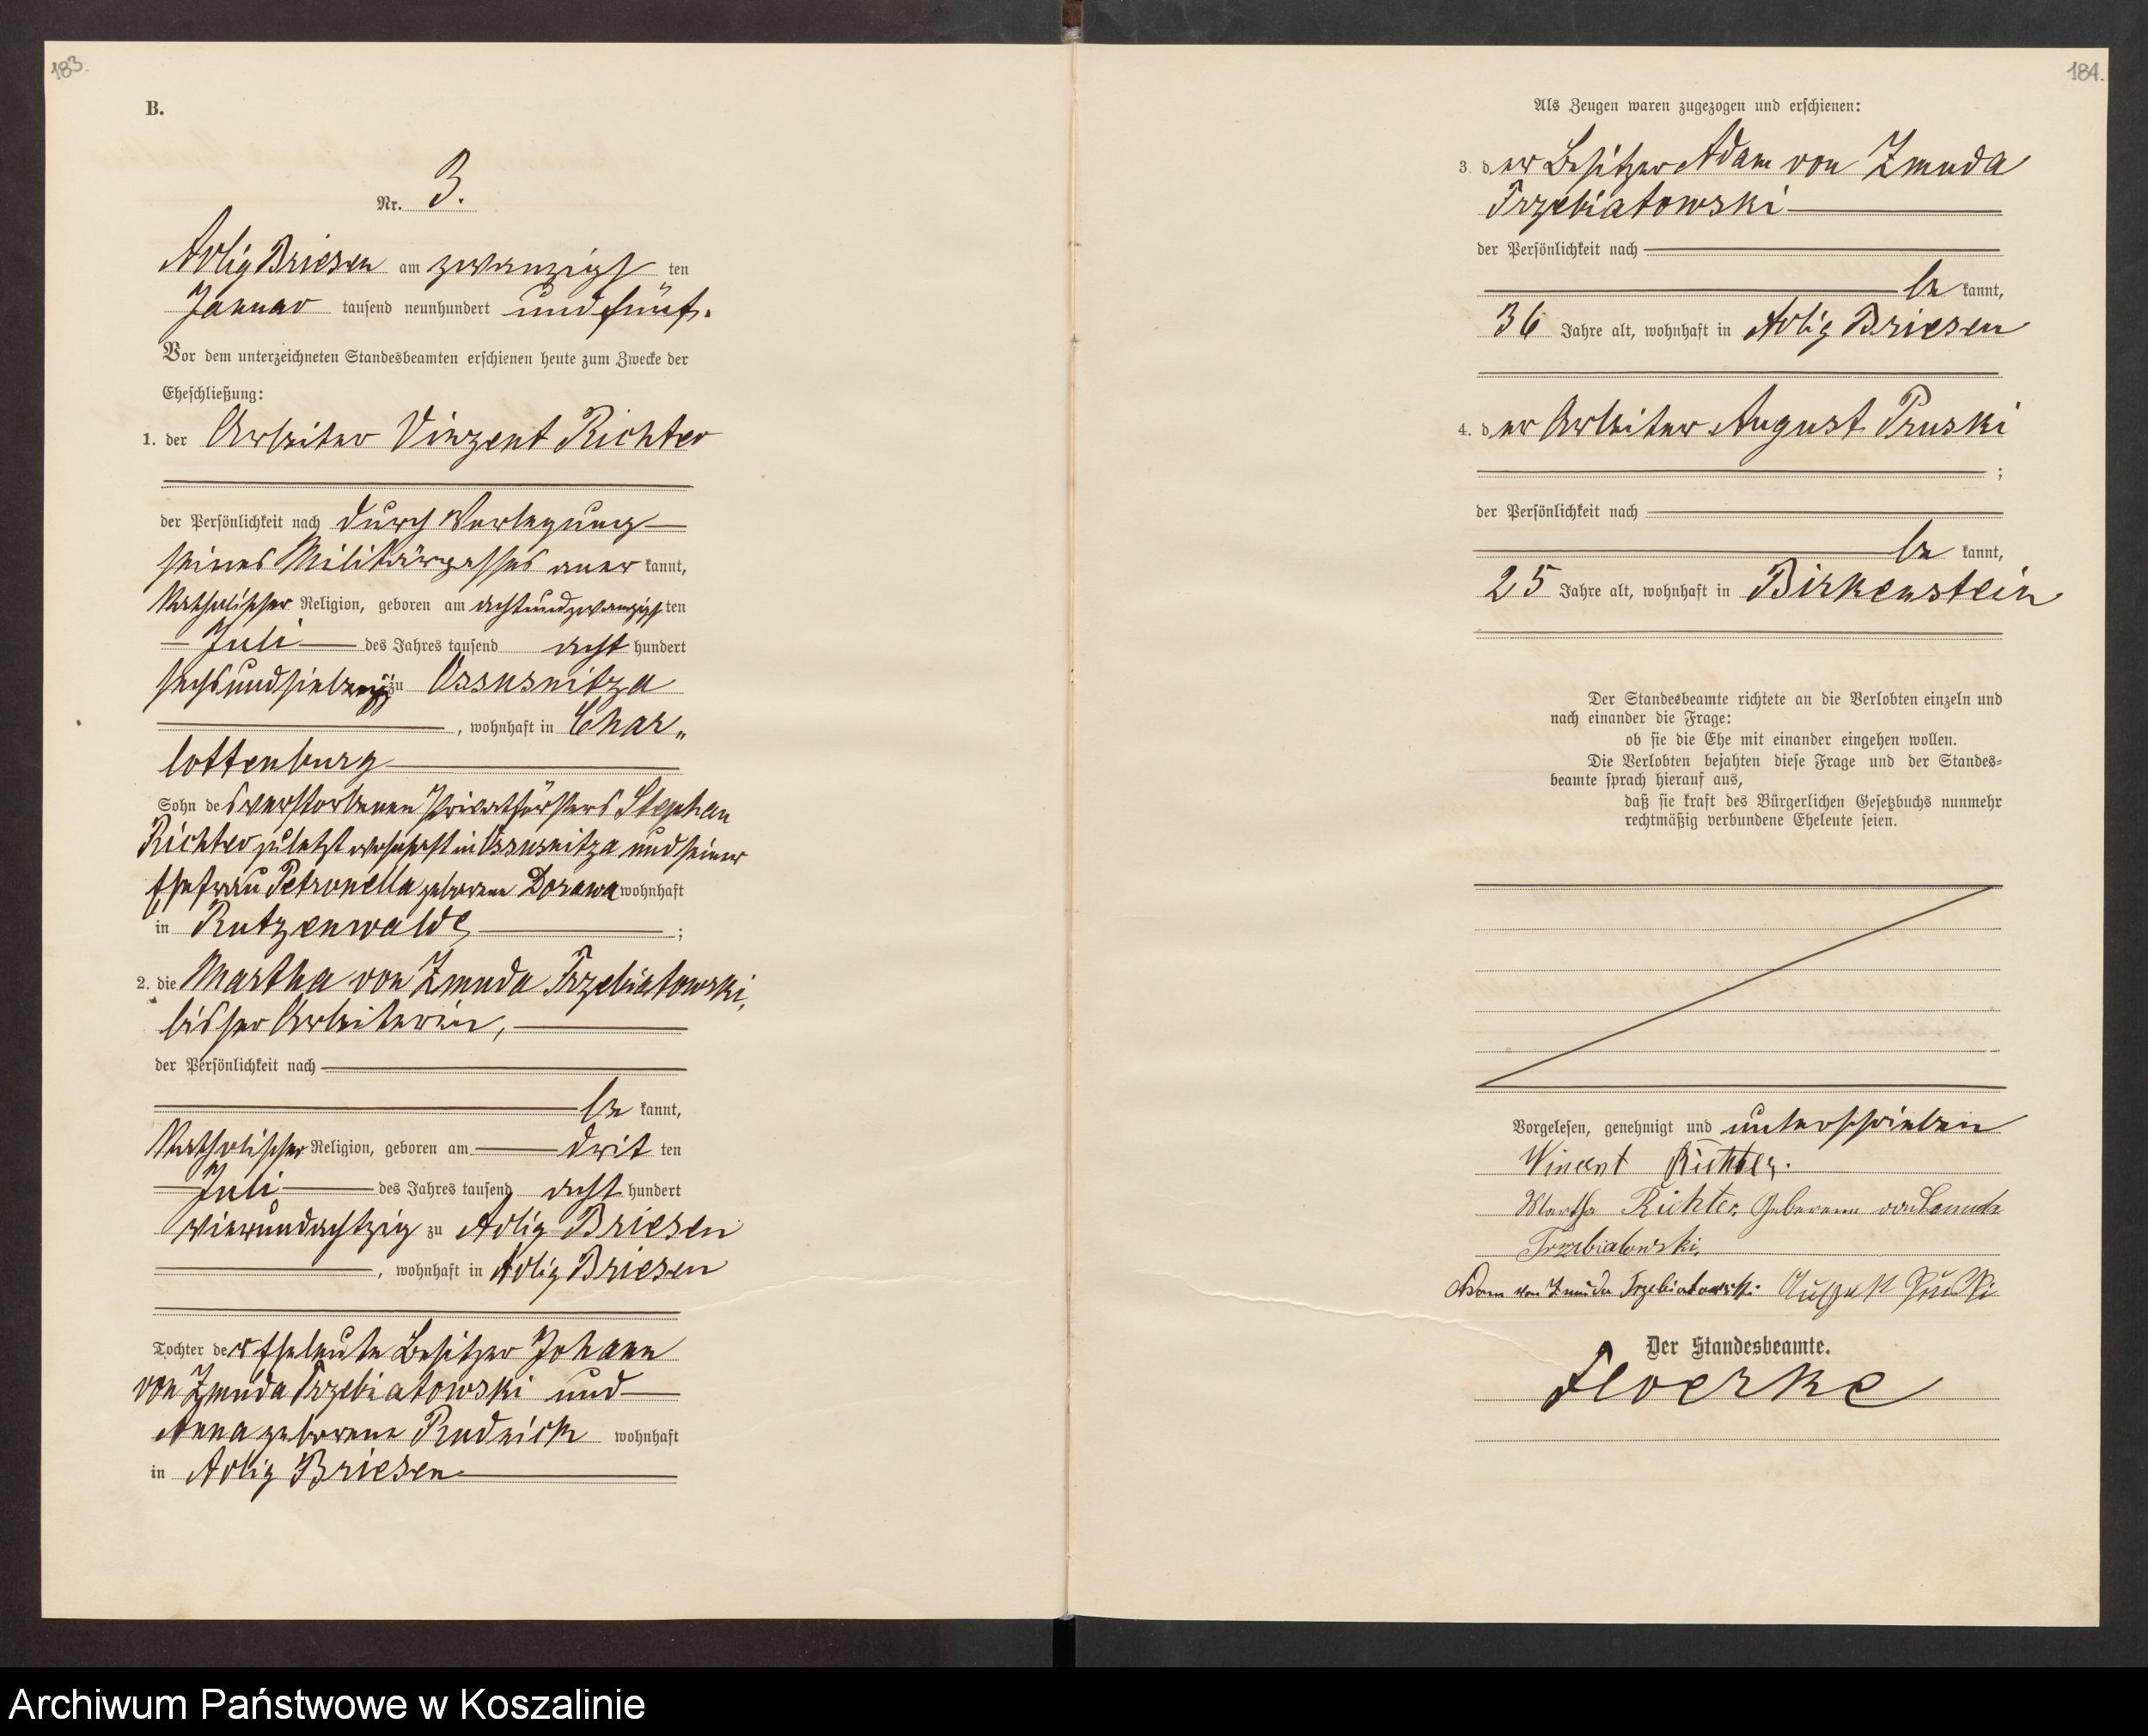 183.
B.
Nr. 3.
Adlig Briesen am zwanzigsten
Januar tausend neunhundert und fünf.
Vor dem unterzeichneten Standesbeamten erschienen heute zum Zwecke der
Eheschließung:
1. der Arbeiter Vinzent Richter
der Persönlichkeit nach durch Vorlegung
seines Militärpasses anerkannt,
katholischer Religion, geboren am achtundzwanzigsten
Juli des Jahres tausend acht hundert
sechsundsiebenzig zu Ossusnitza
, wohnhaft in Char„
lottenburg
Sohn des verstorbenen Privatförsters Stephan
Richter zuletzt wohnhaft in Ossusnitza und seiner
Ehefrau Petronella geborene Dorawa wohnhaft
in Rutzenwalde ;
2. die Martha von Zmuda Trzebiatowski,
bisher Arbeiterin,
der Persönlichkeit nach
be kannt,
katholischer Religion, geboren am drit ten
Juli des Jahres tausend acht hundert
vierundachtzig zu Adlig Briesen
, wohnhaft in Adlig Briesen
Tochter der Eheleute Besitzer Johann
von Zmuda Trzebiatowski und
Anna geborene Rudnick wohnhaft
in Adlig Briesen
184.
Als Zeugen waren zugezogen und erschienen:
3. der Besitzer Adam von Zmuda
Trzebiatowski
der Persönlichkeit nach
be kannt,
36 Jahre alt, wohnhaft in Adlig Briesen
4. der Arbeiter August Pruski
;
der Persönlichkeit nach
be kannt,
25 Jahre alt, wohnhaft in Birkenstein
Der Standesbeamte richtete an die Verlobten einzeln und
nach einander die Frage:
ob sie die Ehe mit einander eingehen wollen.
Die Verlobten bejahten diese Frage und der Standes=
beamte sprach hierauf aus,
daß sie kraft des Bürgerlichen Gesetzbuchs nunmehr
rechtmäßig verbundene Eheleute seien.
Vorgelesen, genehmigt und unterschrieben
Wincent Richter.
Martha Richter geborene von Zmuda
Trzebiatowski.
Adam von Zmuda Trzebiatowski. August Pruski
Der Standesbeamte.
Floerke
Archiwum Państwowe w Koszalinie